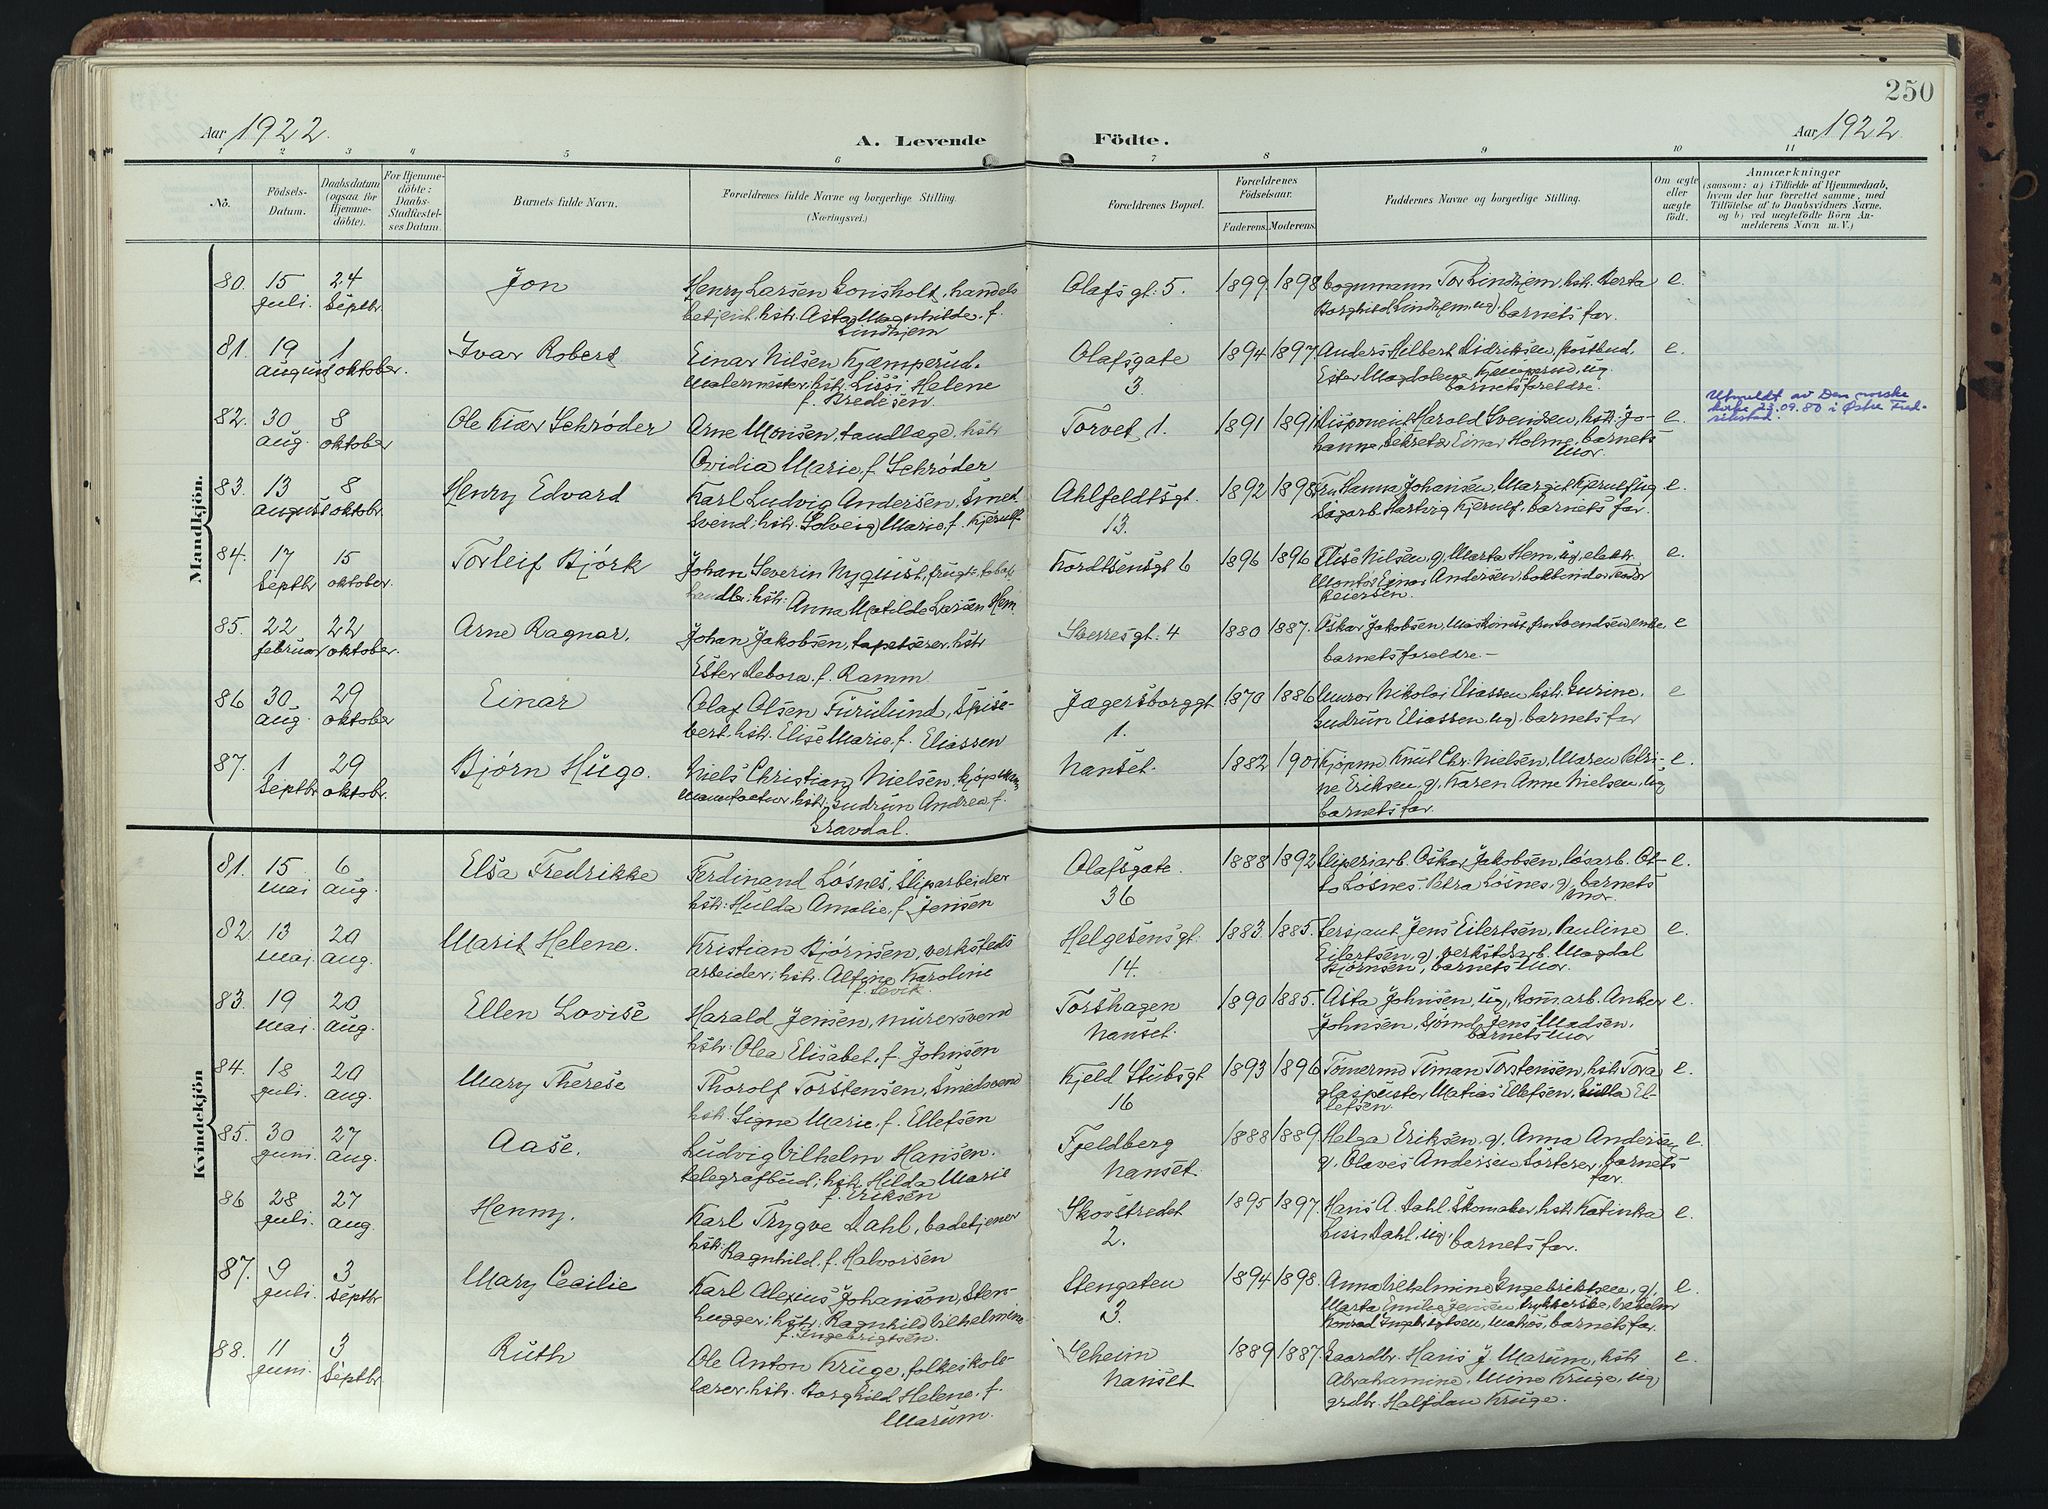 250
Aar 1922.
A. Levende
Födte.
Aar 1922
1 2 3 4 5 6 7 8 9 10 11
No.
Födsels-Datum.
Daabsdatum (ogsaa for Hjemme-döbte).
For Hjemme-döbte: Daabs-Stadfæstel-ses Datum.
Barnets fulde Navn.
Forældrenes fulde Navne og borgerlige Stilling. (Næringsvei.)
Forældrenes Bopæl.
Forældrenes Födselsaar.
Faderens. Moderens.
Faddernes Navne og borgerlige Stilling.
Om ægte eller uægte födt.
Anmærkninger
(saasom: a) i Tilfælde af Hjemmedaab,
hvem der har forrettet samme, med
Tilföielse af to Daabsvidners Navne,
og b) ved uægtefödte Börn An-
melderens Navn m. V.)
Mandkjön.
80. 15 juli. 24 Septbr. Jon
Henry Larsen Gonsholt, handels
betjent, hstr. Asta Magnhilde, f.
Lindhjem
Olafsgt: 5. 1899 1898
Tor Lindhjem, hstr. Berta
Borghild Lindhjem, ug, barnets far. e.
81. 19 august 1 oktober. Ivar Robert
Einar Nilsen Kjæmperud.
Malermester, hstr. Lissi Helene
f. Bredesen.
Olafsgate 3. 1894 1897
Anders Hilbert Didriksen, postbud,
Ester Magdalene Kjæmperud, ug.
barnets foreldre. e.
82. 30 aug. 8 oktober Ole Kiær Schrøder
Arne Monsen, tandlæge, hstr
Ovidia Marie, f. Schrøder
Torvet 1. 1891 1891
Disponent Harald Svendsen, hstr. Jo-
hanne, Sekretær Einar Holme, barnets
Mor. e.
Utmeldt av Den norske
kirke 09.80 i Østre Fred-
rikstad
83. 13 august 8 oktobr. Henry Edvard
Karl Ludvig Andersen, Smed
Svend, hstr. Solveig Marie, f. Kjerulf
Ahlfeldtsgt. 13. 1892 1898
Fru Hanna Johansen, Margit Kjerulf ug
Sagarb. Hartvig Kjerulf, barnets far. e.
84. 17 Septbr 15 oktober. Torleif Bjørk
Johan Severin Nyquist, frugt- tobak
handler, hstr. Anna Matilde Larsen Hem.
Nordtsensgt 6 1896 1896
Elise Nilsen, g, Marta Hem, ug, elektr.
Montør Einar Andersen, bokbinder
Reiersen. e.
85. 22 februar 22 oktober. Arne Ragnar.
Johan Jakobsen, tapetserer, hstr
Ester Debora, f. Ramm.
Sverresgt: 4 1880 1887.
Oskar Jakobsen, Maskinist, fru Svendsen, enke,
barnets foreldre.- e
86 30 aug. 29 oktober Einar
Olaf Olsen Furulund, Spise-
vert, hstr. Elise Marie, f. Eliassen
Jægersborggt 1. 1870 1886
Murer Nikolai Eliassen, hstr. Gurine,
Gudrun Eliassen, ug, barnets far e
87. 1 Septbr 29 oktobr. Bjørn Hugo.
Niels Christian Nielsen, kjøpmann
Manufactur, hstr. Gudrun Andrea f.
Gravdal.
Nanset. 1882 1901
Kjøpmn Knut Chr. Nielsen, Maren Petri-
ne Eriksen, g. Karen Anne Nielsen, ug
barnets far. e.
Kvindekjön
81. 15 mai 6 aug. Elsa Fredrikke
Ferdinand Løsnes, Sliparbeider
hstr. Hulda Amalie, f. Jensen
Olafsgate. 36 1888 1892
Sliperiarb. Oskar Jakobsen, løsarb. Ot-
to Løsnes. Petra Løsnes, g, barnets
mor. e.
82. 13 mai 20 aug. Marit Helene.
Kristian Bjørnsen, verksteds
arbeider, hstr. Alfine Karoline
f. Sevik.
Helgesensgt. 14. 1883. 1885.
Sersjant Jens Eilertsen, Pauline
Eilertsen, g. verkstedarb. Magdal
Bjørnsen, barnets Mor. e.
83. 19 mai. 20 aug. Ellen Lovise
Harald Jensen, murersvend
hstr. Olea Elisabet, f. Johnsen
Torshagen Nanset. 1890 1885.
Asta Johnsen, ug, kom.arb. Anker
Johnsen, Sjømd Jens Madsen,
barnets Mor e.
84. 18 juli. 20 aug. Mary Therese
Thorolf Torstensen, Smedsvend
hstr. Signe Marie, f. Ellefsen
Kjeld Stubsgt 16 1893 1896
Tømermd Timan Torstensen, hstr. Tora
glaspuster Matias Ellefsen, Hulla El-
lefsen. e.
85. 30 juni. 27 aug. Aase.
Ludvig Vilhelm Hansen.
telegrafbud, hstr. Hilda Marie
f. Eriksen
Fjeldberg Nanset. 1888 1889
Helga Eriksen, g. Anna Andersen,
g. Olaves Andersen Sorterer, barnets
far. e.
86 28 juli. 27 aug. Henny.
Karl Trygve Dahl, badetjener
hstr. Ragnhild, f. Halvorsen
Skovstredet 2. 1895 1897.
Hans A. Dahl, Skomaker, hstr. Katinka
Lissi Dahl, ug, barnets far. e.
87. 9 juli. 3 Septbr Mary Cecilie
Karl Alexius Johanson, Sten-
hugger, hstr. Ragnhild Vilhelmine
f. Ingebrigtsen.
Stengaten 3. 1894 1898.
Anna Vilhelmine Ingebriktsen, g,
Marta Emilie Jensen, trykkerske, Vilhelm
Konrad Ingebrigtsen, Matros, barnets far. e.
88. 11 juni. 3 Septbr Ruth
Ole Anton Kruge, folkeskole-
lærer, hstr. Borghild Helene, f.
Marum.
Seheim Nanset 1889 1887.
Gaardbr. Hans J. Marum, hstr
Abrahamine, Mina Kruge, ug,
grdbr. Halfdan Kruge. e.